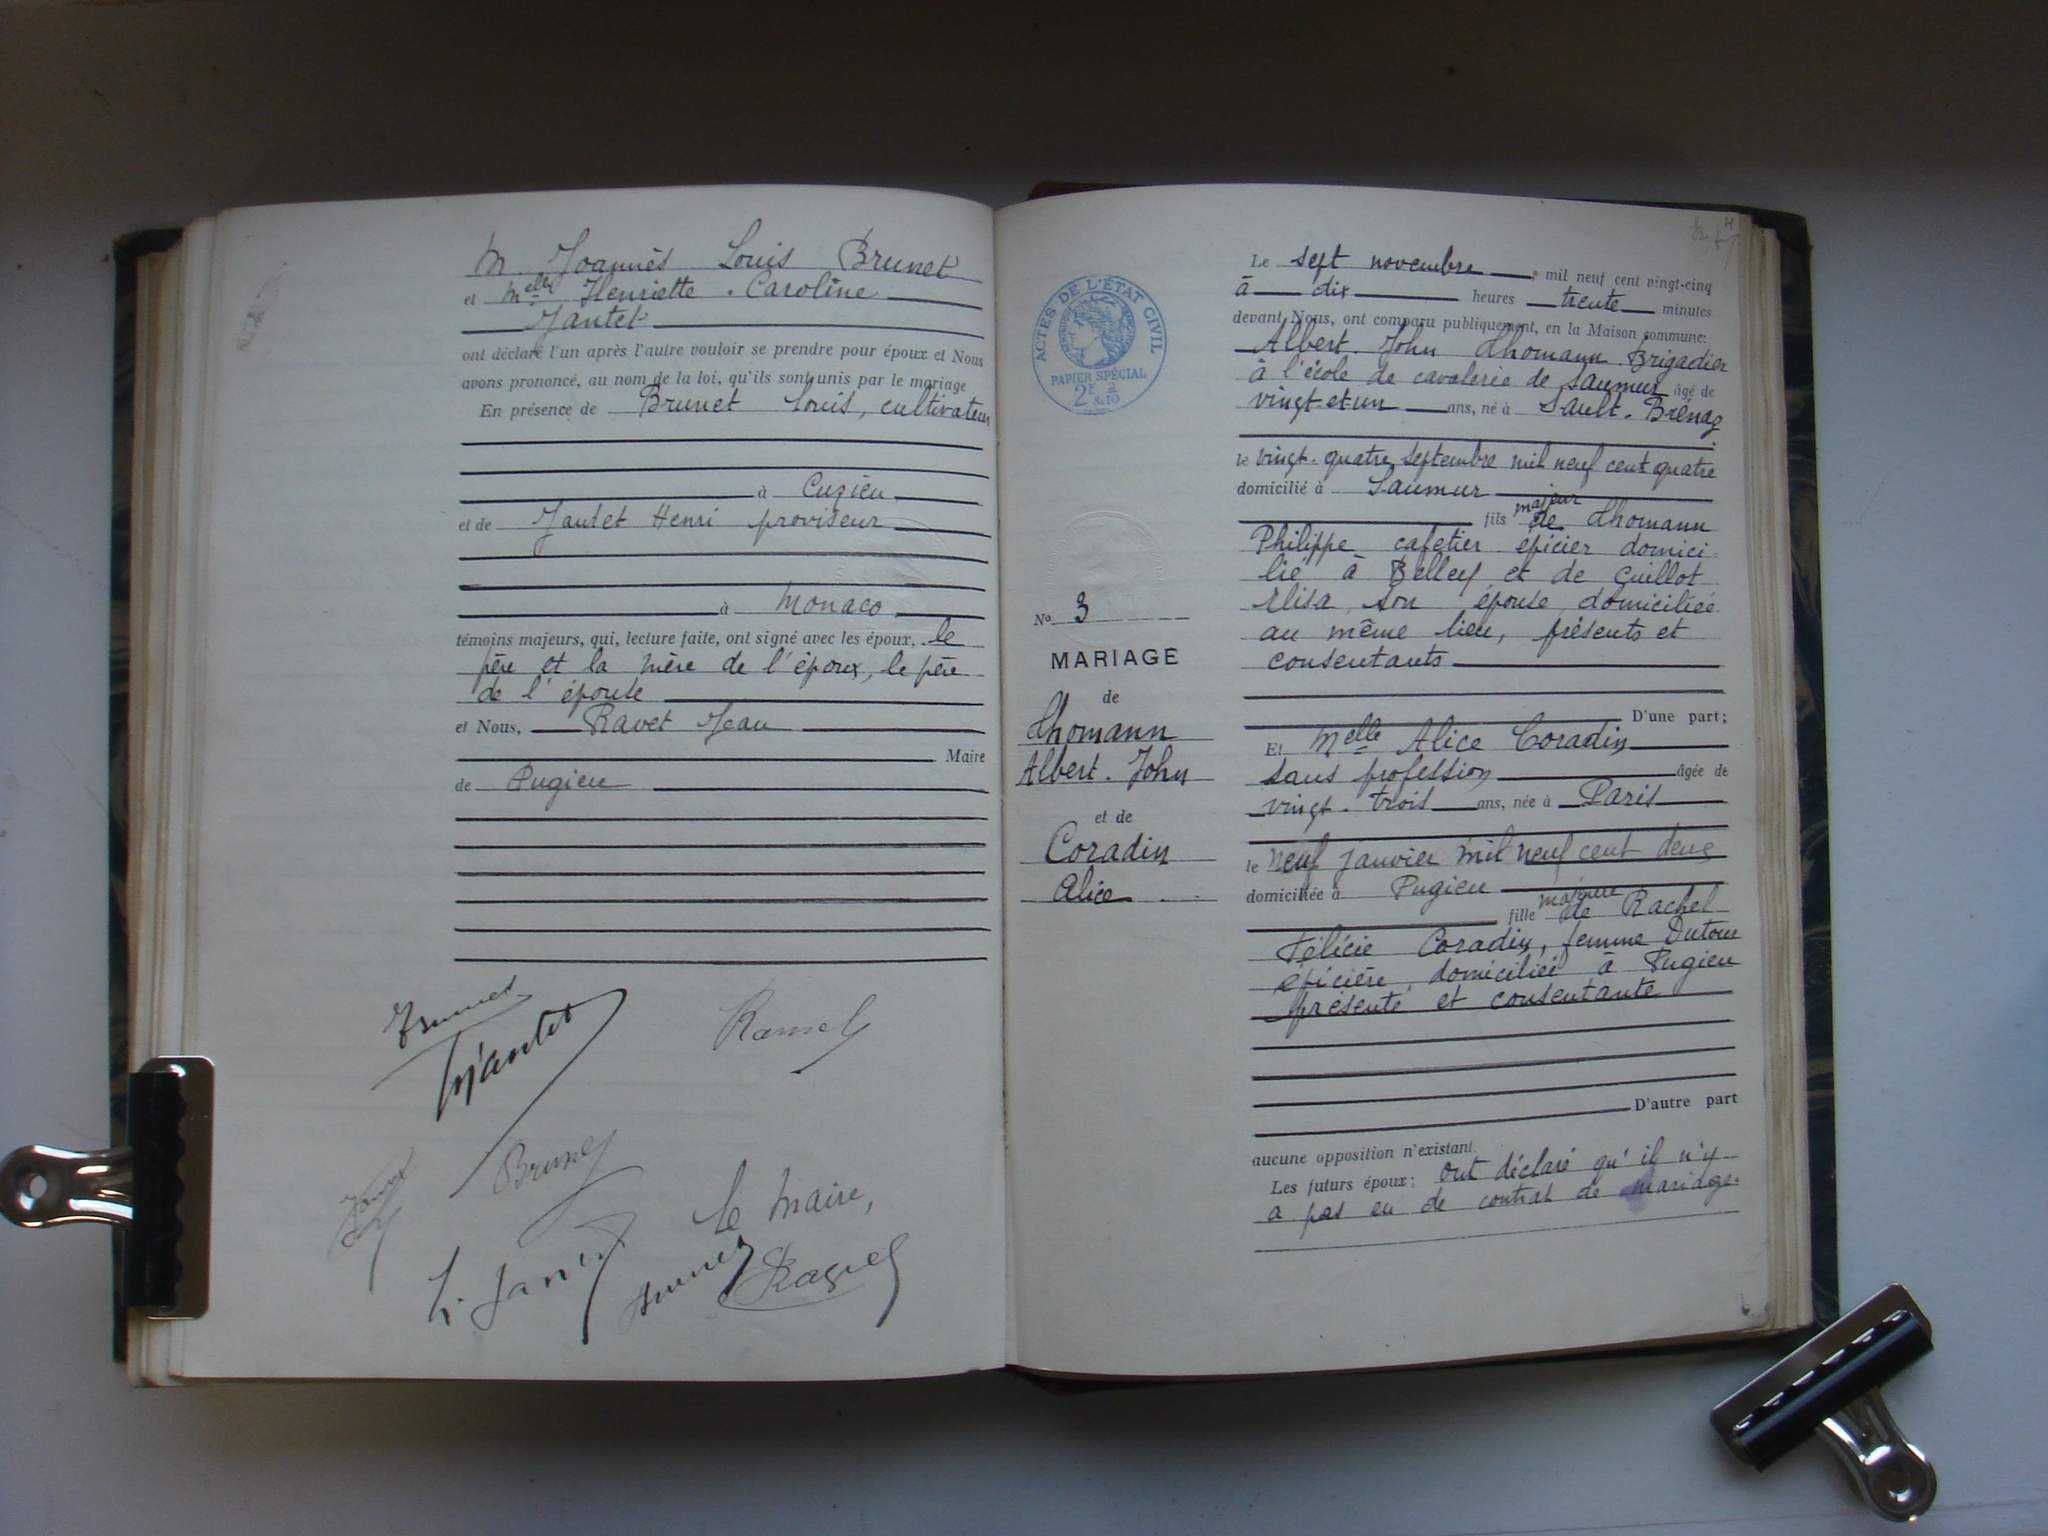 M. Joannès Louis Brunet
et Melle Henriette. Caroline
Jantet
ont déclaré l'un après l'autre vouloir se prendre pour époux et Nous
avons prononcé, au nom de la loi, qu'ils sont unis par le mariage
En présence de Brunet Louis, cultivateur
à Cuzieu
et de Jantet Henri proviseur
à Monaco
témoins majeurs, qui, lecture faite, ont signé avec les époux, le
père et la mère de l'époux, le père
de l'épouse
et Nous, Ravet Jean
Maire
de Pugieu
Jantet
Brunet
Le Maire,
ACTES DE L'ÉTAT CIVIL
PAPIER SPÉCIAL
2F & 2/10
No 3
MARIAGE
de
Lhomann
Albert. John
et de
Coradin
Alice
Le sept novembre, mil neuf cent vingt-cinq
à dix heures trente minutes
devant Nous, ont comparu publiquement, en la Maison commune:
Albert John Lhomann Brigadier
à l'école de cavalerie de Saumur âgé de
vingt-et-un ans, né à Sault-Brénaz
le vingt-quatre septembre mil neuf cent quatre
domicilié à Saumur
fils majeur de Lhomann
Philippe cafetier épicier domici-
lié à Belley et de Guillot
Elisa son épouse domiciliée
au même lieu, présents et
consentants
D'une part;
Et Melle Alice Coradin
sans profession âgée de
vingt-trois ans, née à Paris
le neuf janvier mil neuf cent deux
domiciliée à Pugieu
fille majeure de Rachel
Félicie Coradin, femme Dutour
épicière, domiciliée à Pugieu
présente et consentante
D'autre part
aucune opposition n'existant.
Les futurs époux; ont déclaré qu'il n'y
a pas eu de contrat de mariage.